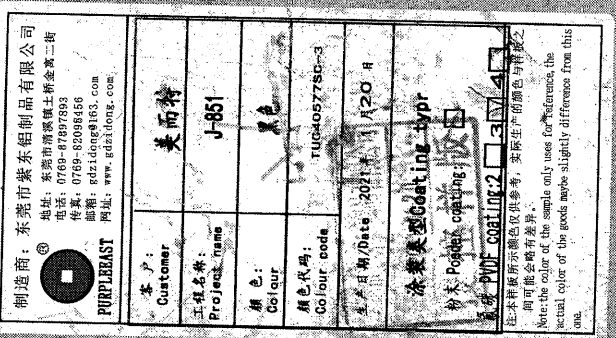 制造商：东莞市紫东铝制品有限公司
地址：东莞市清溪镇土桥金高二街
电话：0769-87897893
传真：0769-82098456
邮箱：gdzidong@163.com
网址：www.gdzidong.com
®
PURPLEEAST
客户：
Customer
美而特
工程名称：
Project name
J-851
颜色：
Colour
黑色
颜色代码：
Colour code
TUG40577SC-3
生产日期/Date 2021年1月20日
涂装类型Coating typr
粉末:Powder coating:
PVDF coating:2 3 4
注:本样板所示颜色仅供参考，实际生产的颜色与样板之
间可能会略有差异。
Note:the color of the sample only uses for reference, the
actual color of the goods maybe slightly difference from this
one.